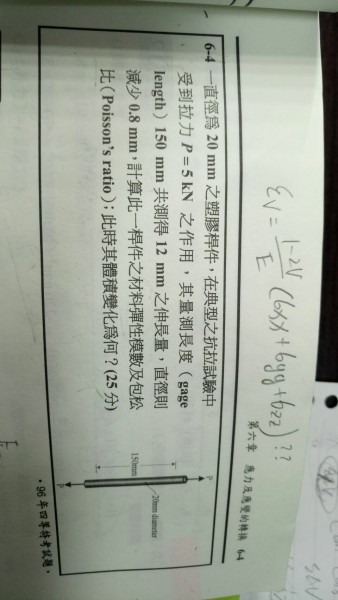 εV = 1-2ν/E (6xx+6yy+6zz) ??
第六章 應力及應變的轉換 6-4
6-4 一直徑為 20 mm 之塑膠桿件，在典型之抗拉試驗中
受到拉力 P = 5 kN 之作用，其量測長度（gage
length）150 mm 共測得 12 mm 之伸長量，直徑則
減少 0.8 mm，計算此一桿件之材料彈性模數及包松
比（Poisson's ratio）；此時其體積變化為何？(25 分)
P
20mm diameter
150mm
P
·96 年四等特考試題·